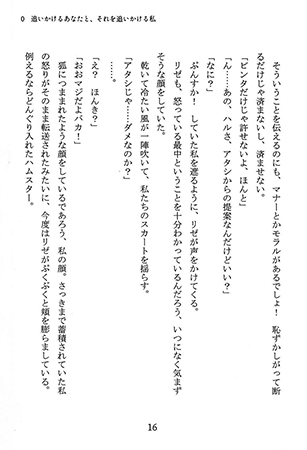 0　追いかけるあなたと、それを追いかける私
そういうことを伝えるのにも、マナーとかモラルがあるでしょ！　恥ずかしがって断
るだけじゃ済まないし、済ませない。
「ビンタだけじゃ許せないよ、ほんと」
「ん……あの、ハルさ、アタシからの提案なんだけどいい？」
「なに？」
ずんずか！　していた私を遮るように、リゼが声をかけてくる。
リゼも、怒っている最中ということを十分わかっているんだろう、いつになく気まず
そうな顔をしていた。
乾いて冷たい風が一陣吹いて、私たちのスカートを揺らす。
「アタシじゃ……ダメなのか？」
「え？　ほんき？」
「おおマジだよバカ！」
狐につままれたような顔をしているであろう、私の顔。さっきまで蓄積されていた私
の怒りがそのまま転送されたみたいに、今度はリゼがぷくぷくと頬を膨らましている。
例えるならどんぐり入れたハムスター。
16